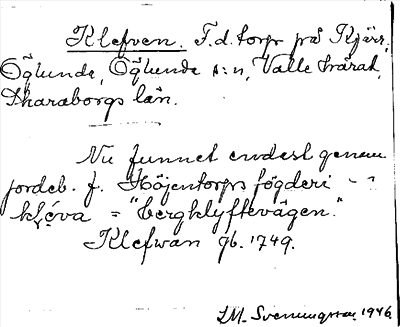 Klefven. F.d. torp på Kjärr,
Öglunda, Öglunda s:n, Valle härad,
Skaraborgs län.
Nu funnet endast genom
jordeb. f. Höjentorps fögderi - "
kl̥éva = "bergklyftevägen."
Klefwan Jb. 1749.
I.M. Svenningsson 1946.